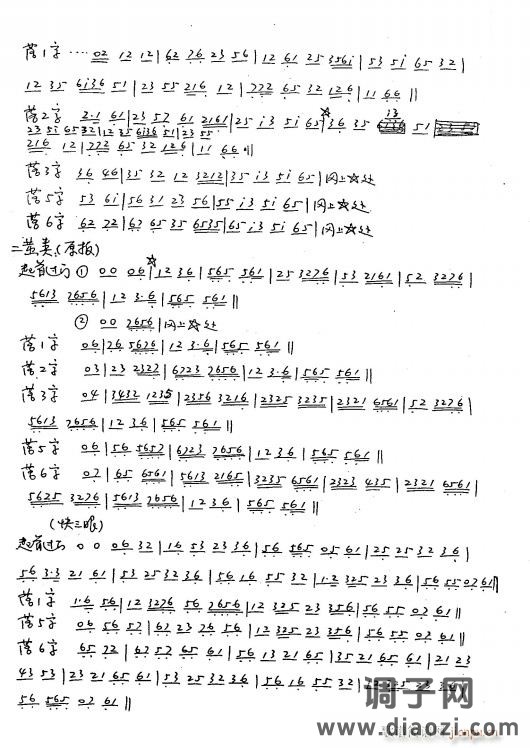 落1字 … 02 12 12 | 62 76 23 56 | 12 61 25 3561 | 53 51 65 32 |
12 35 6136 51 | 23 55 216 12 | 772 65 32 126 | 11 66 ‖
落2字 2·1 61 | 23 57 61 2161 | 25 13 51 65 | 36 35 51
23 51 6532 | 12 35 6136 51 | 23 55
216 12 | 772 65 32 126 | 11 66 ‖
落3字 36 46 | 35 32 12 3212 | 35 13 51 65 | 同上☆处
落5字 53 61 | 56 31 23 56 | 55 13 51 65 | 同上☆处
落6字 62 72 | 62 65 35 6535 | 65 13 51 65 | 同上☆处
二黄类(原板)
起首过门 ① 00 06 | 12 3 6 | 565 561 | 25 3276 | 53 2161 | 52 3276 |
5613 7656 | 12 3·6 | 565 561 ‖
② 00 7656 | 同上☆处
落1字 06 | 76 5676 | 12 3·6 | 565 561 ‖
落2字 03 | 23 2327 | 6723 7656 | 12 3·6 | 565 561 ‖
落3字 04 | 3432 1235 | 2356 3216 | 2325 3235 | 2321 6561 | 52 3276 |
5613 7656 | 12 3·6 | 565 561 ‖
落5字 06 | 56 5657 | 6723 7656 | 12 3 6 | 565 561 ‖
落6字 07 | 65 6561 | 5613 2165 | 3235 6561 | 2323 435 | 2321 6561 |
5625 3276 | 5613 7656 | 12 3 6 | 565 561 ‖
(快三眼)
起首过门 0 0 06 32 | 16 53 23 36 | 56 565 05 61 | 25 25 32 36 |
56 3·3 21 61 | 53 25 32 36 | 56 16 55 32 | 1·2 325 23 36 | 56 55 07 61 ‖
落1字 1·6 56 | 12 3276 56 7656 | 12 325 23 356 | 56 55 07 61 ‖
落5字 06 56 57 | 67 23 76 56 | 12 325 23 356 | 56 55 07 61 ‖
落6字 65 72 | 67 57 65 61 | 56 13 21 65 | 35 21 65 61 | 21 23
43 53 | 23 21 65 61 | 53 25 32 36 | 56 16 55 32 | 12 325 23 36 |
56 565 07 61 ‖
调子网
www.diaozi.com